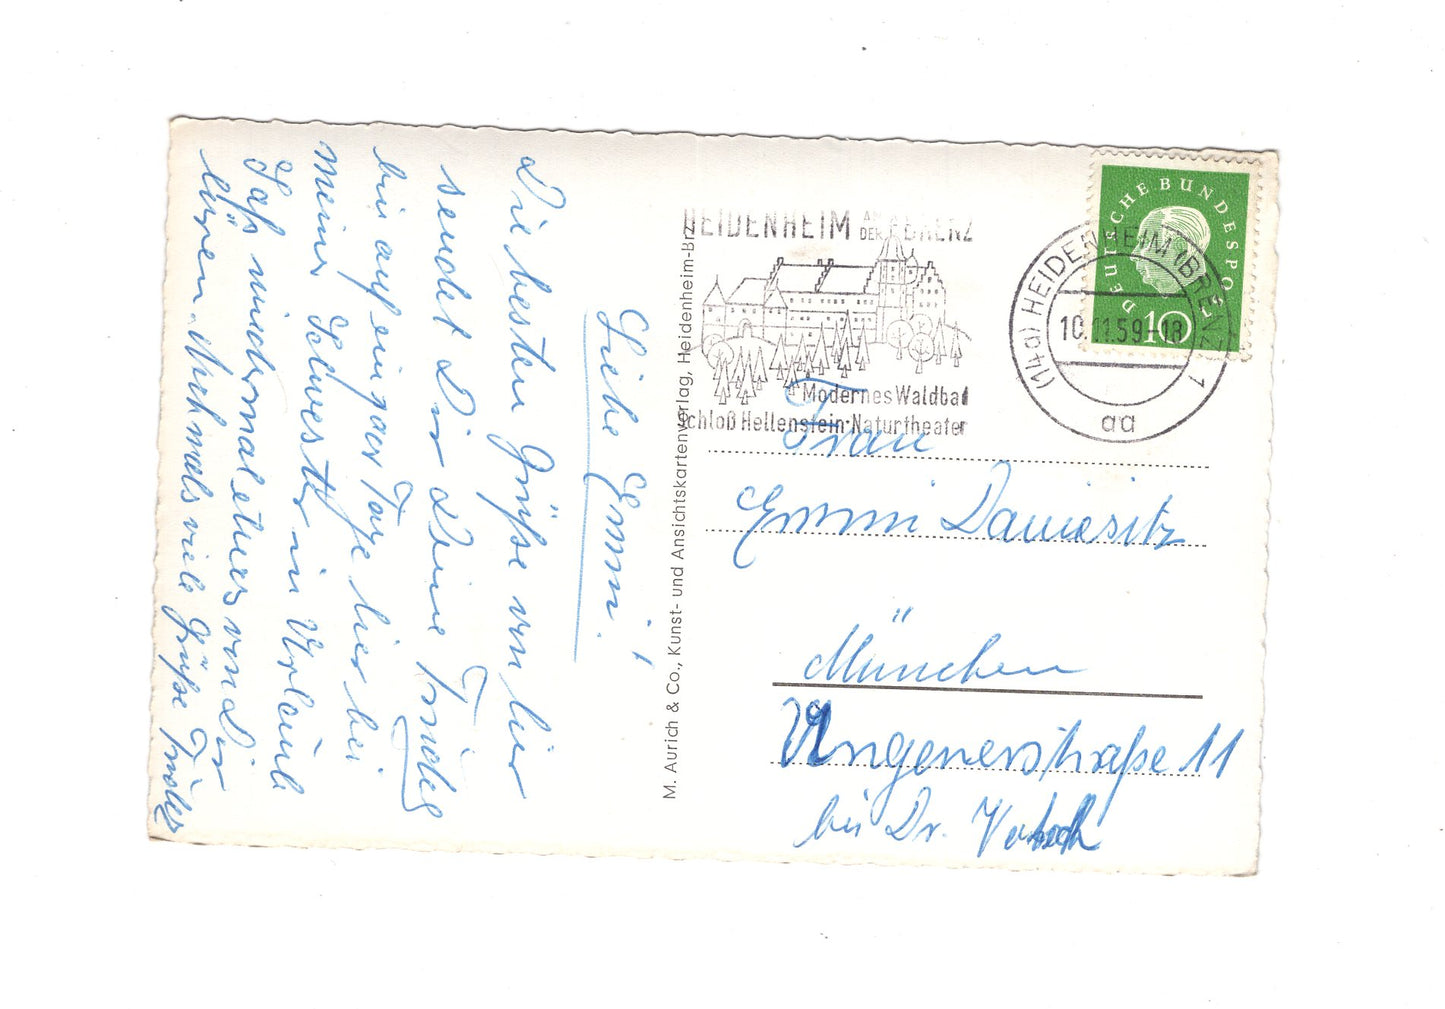 Liebe Emmi!
Die besten Grüße von hier
sendet Dir Deine Friedel
bin auf einige Tage hier bei
meiner Schwester in Urlaub
Laß wiedermal etwas von Dir
hören. Nochmals viele Grüße Friedel
M. Aurich & Co., Kunst- und Ansichtskartenverlag, Heidenheim-Brz.
HEIDENHEIM AN DER BRENZ
Modernes Waldbad
Schloß Hellenstein·Naturtheater
DEUTSCHE BUNDESPOST
10
(14a) HEIDENHEIM (BRENZ) 1
10.11.59-18
aa
Frau
Emmi
München
Ungererstraße 11
bei Dr.